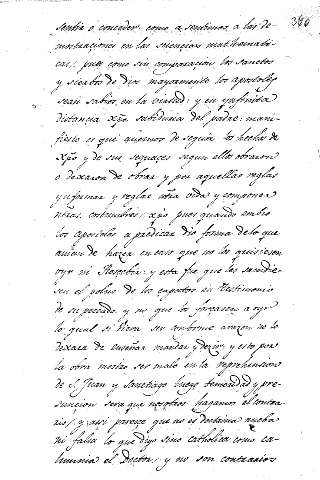 340
sentia o conceder, como a sentimos a las de-
mostraciones en las sciencias mathemati-
cas; pues como sin comparacion los sanctos
y siervos de Dios mayormente los apostoles
sean sabios en la verdad; y en ynfinita
distancia xpo. sabiduria del padre: mani-
fiesto es que avemos de seguir los hechos de
xpo. y de sus sequaces segun ellos obraron
o dexaron de obrar y por aquellas reglas
y informar y reglar nra vida y componer
ntras. costumbres; xpo pues quando embio
los apostolos a predicar dio forma de lo que
avian de hazer en caso que no los quisiesen
oyr ni Rescebir: y esta fue que las sacudie-
sen el polvo de los çapatos en testimonio
de su pecado y no que los forçasen a oyr
lo qual si Uera ser conforme a razon no lo
dexara de enseñar mandar y dezir; y esto por
la obra muestra ser malo en la reprehension
de S. Juan y Sanctiago luego temeridad y pre-
suncion sera que nosotros hagamos el contra-
rio; y assi parece que no es doctrina nueba
ni falsa lo que dijo sino catholica como ca-
lumnia el Doctor; y no son contrarios